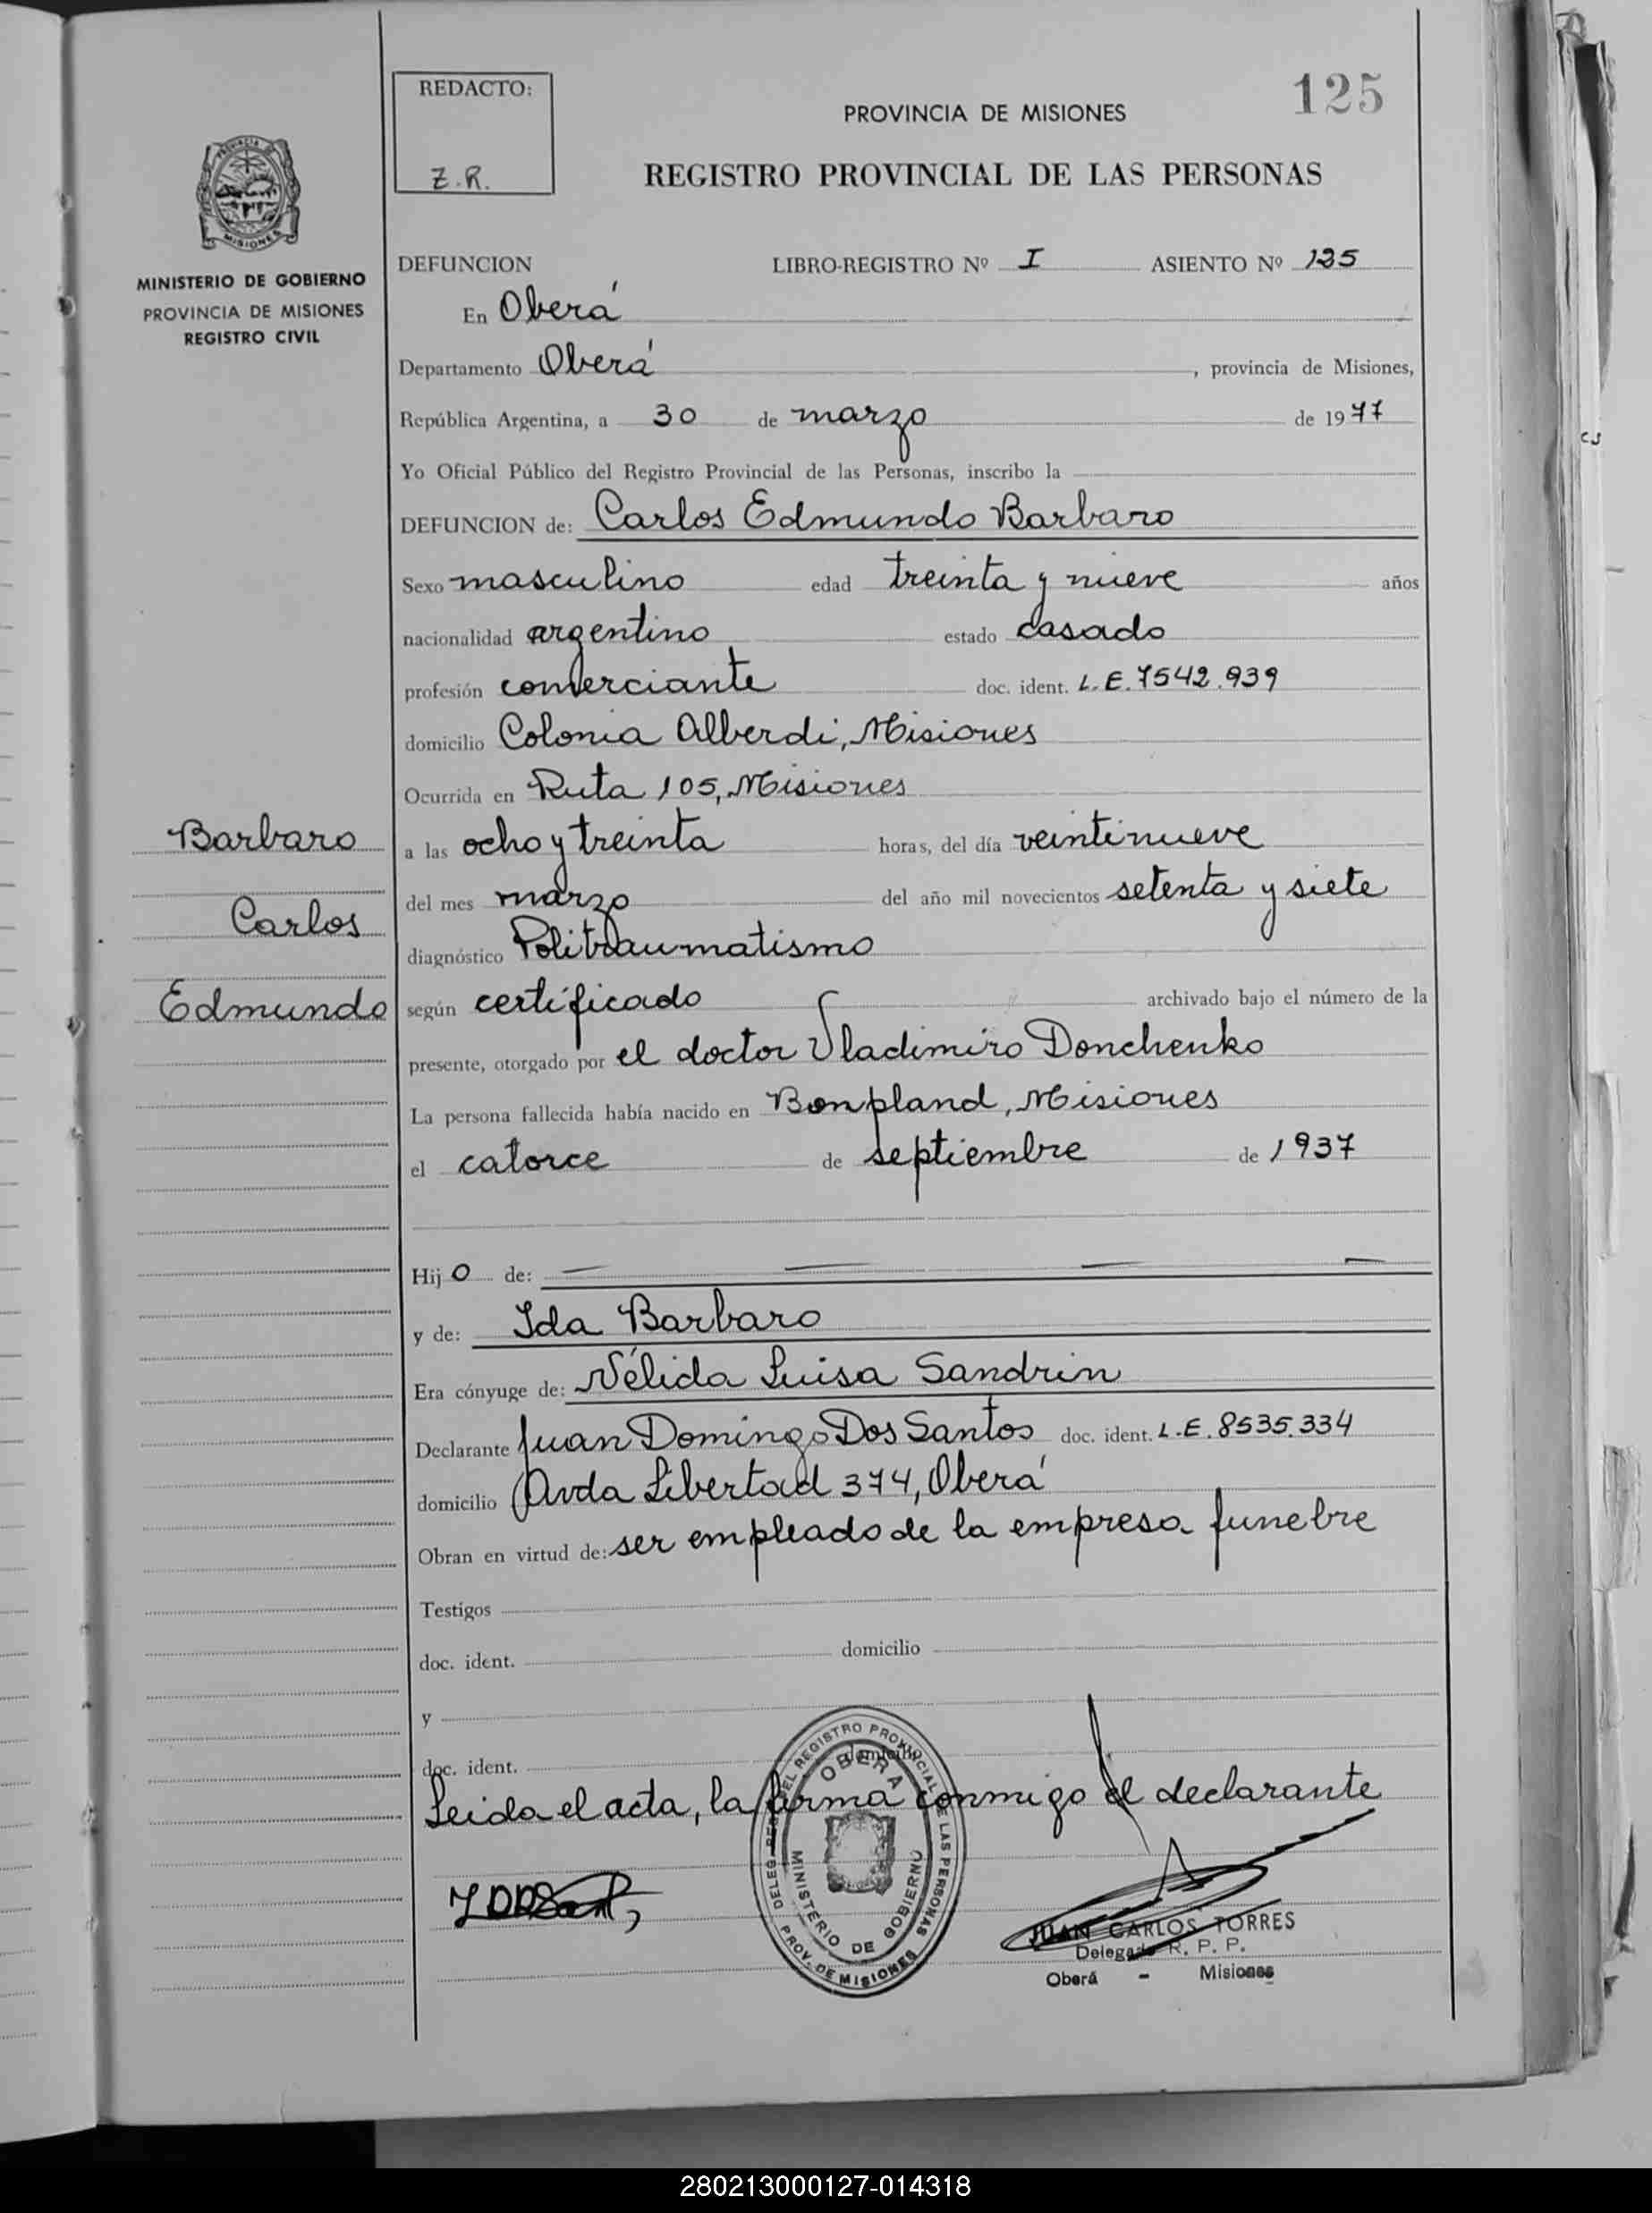 REDACTO:
Z.R.
125
PROVINCIA DE MISIONES
REGISTRO PROVINCIAL DE LAS PERSONAS
PROVINCIA DE
MISIONES
MINISTERIO DE GOBIERNO
PROVINCIA DE MISIONES
REGISTRO CIVIL
DEFUNCION LIBRO-REGISTRO Nº I ASIENTO Nº 125
En Oberá
Departamento Oberá, provincia de Misiones,
República Argentina, a 30 de marzo de 1977
Yo Oficial Público del Registro Provincial de las Personas, inscribo la
DEFUNCION de: Carlos Edmundo Barbaro
Sexo masculino edad treinta y nueve años
nacionalidad argentino estado casado
profesión comerciante doc. ident. L.E. 7542.939
domicilio Colonia Alberdi, Misiones
Ocurrida en Ruta 105, Misiones
Barbaro
Carlos
Edmundo
a las ocho y treinta horas, del día veintinueve
del mes marzo del año mil novecientos setenta y siete
diagnóstico Politraumatismo
según certificado archivado bajo el número de la
presente, otorgado por el doctor Vladimiro Donchenko
La persona fallecida había nacido en Bonpland, Misiones
el catorce de septiembre de 1937
Hijo de: — — — —
y de: Ida Barbaro
Era cónyuge de: Nélida Luisa Sandrin
Declarante Juan Domingo Dos Santos doc. ident. L.E. 8535.334
domicilio Avda Libertad 374, Oberá
Obran en virtud de: ser empleado de la empresa funebre
Testigos
doc. ident. domicilio
y
doc. ident. domicilio
Leida el acta, la firma conmigo el declarante
DELEG. DEL REGISTRO PROVINCIAL DE LAS PERSONAS
OBERA
MINISTERIO DE GOBIERNO
PROV. DE MISIONES
JUAN CARLOS TORRES
Delegado R. P. P.
Oberá - Misiones
280213000127-014318